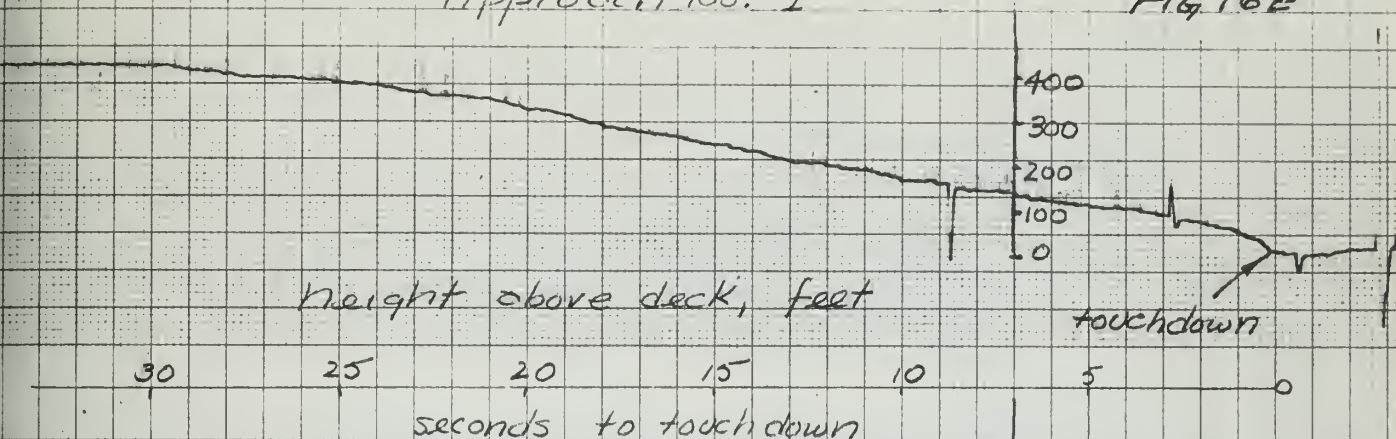 Approach No. 1
FIG 16E
400
300
200
100
0
height above deck, feet
touchdown
30 25 20 15 10 5 0
seconds to touchdown